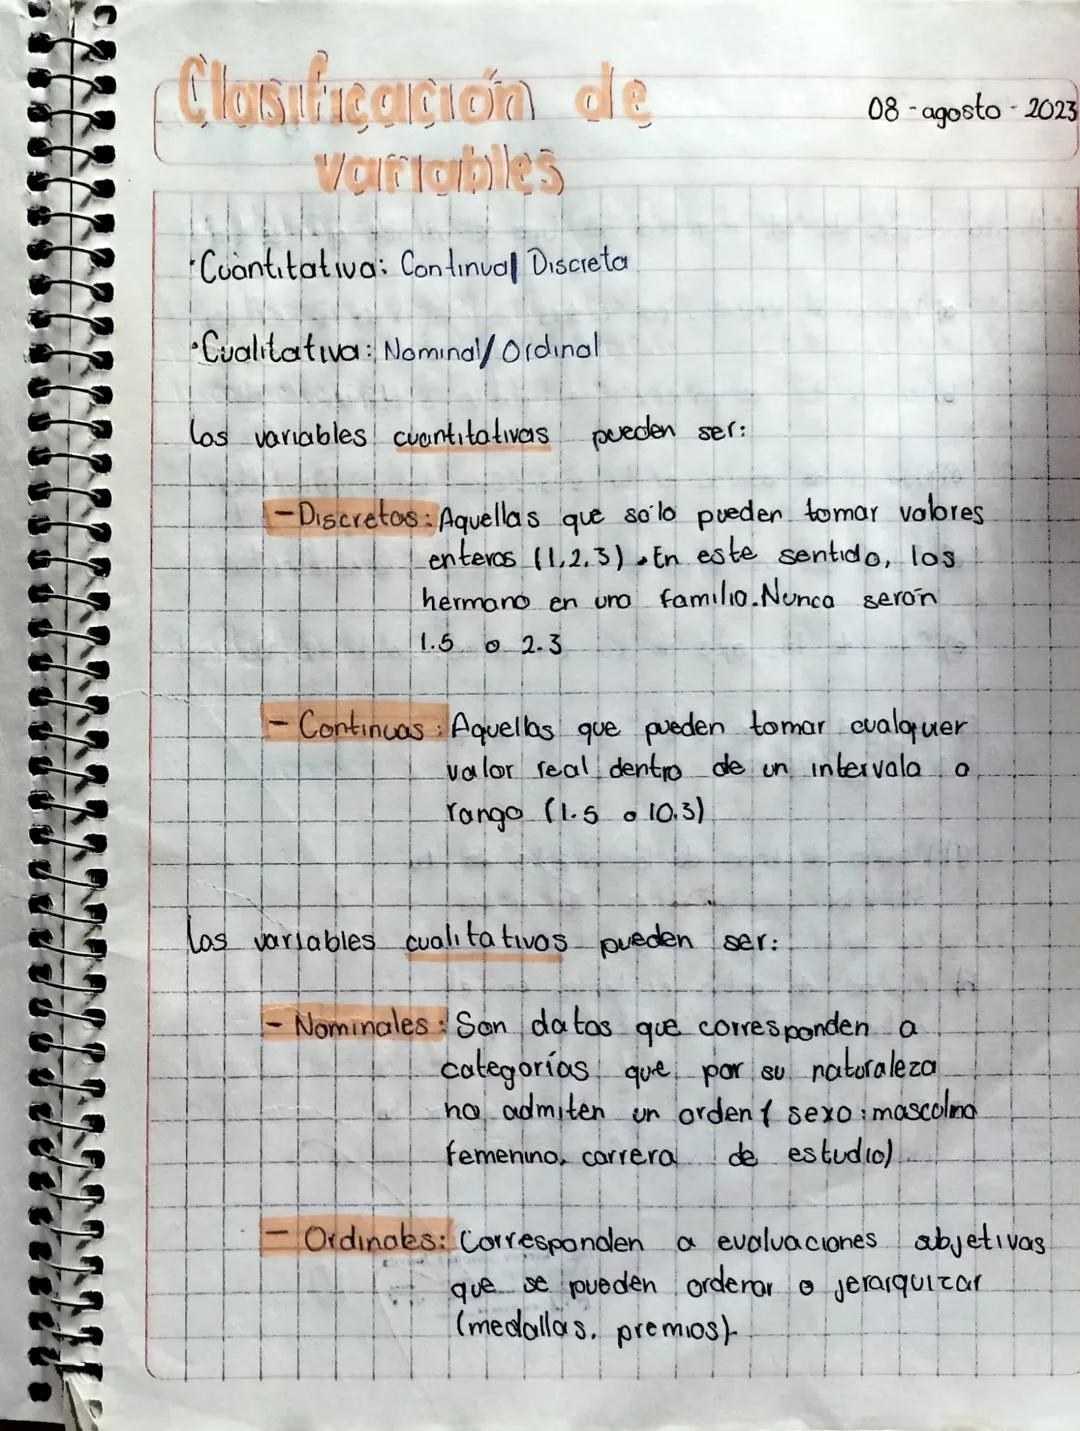 Clasificación de
08-agosto-2023
variables
·Cuantitativa: Continua/ Discreta
·Cualitativa: Nominal/ Ordinal
Las variables cuantitativas pueden ser:
-Discretas: Aquellas que sólo pueden tomar valores
enteros (1,2,3). En este sentido, los
hermano en una familia. Nunca serán
1.5 o 2.3
- Continuas: Aquellas que pueden tomar cualquier
valor real dentro de un intervalo o
rango (1.5 o 10.3)
Las variables cualitativas pueden ser:
- Nominales: Son datos que corresponden a
categorías que por su naturaleza
no admiten un orden ( sexo: mascolino
femenino, carrera de estudio)
- Ordinales: Corresponden a evaluaciones objetivas
que se pueden ordenar o jerarquizar
(medallas, premios).